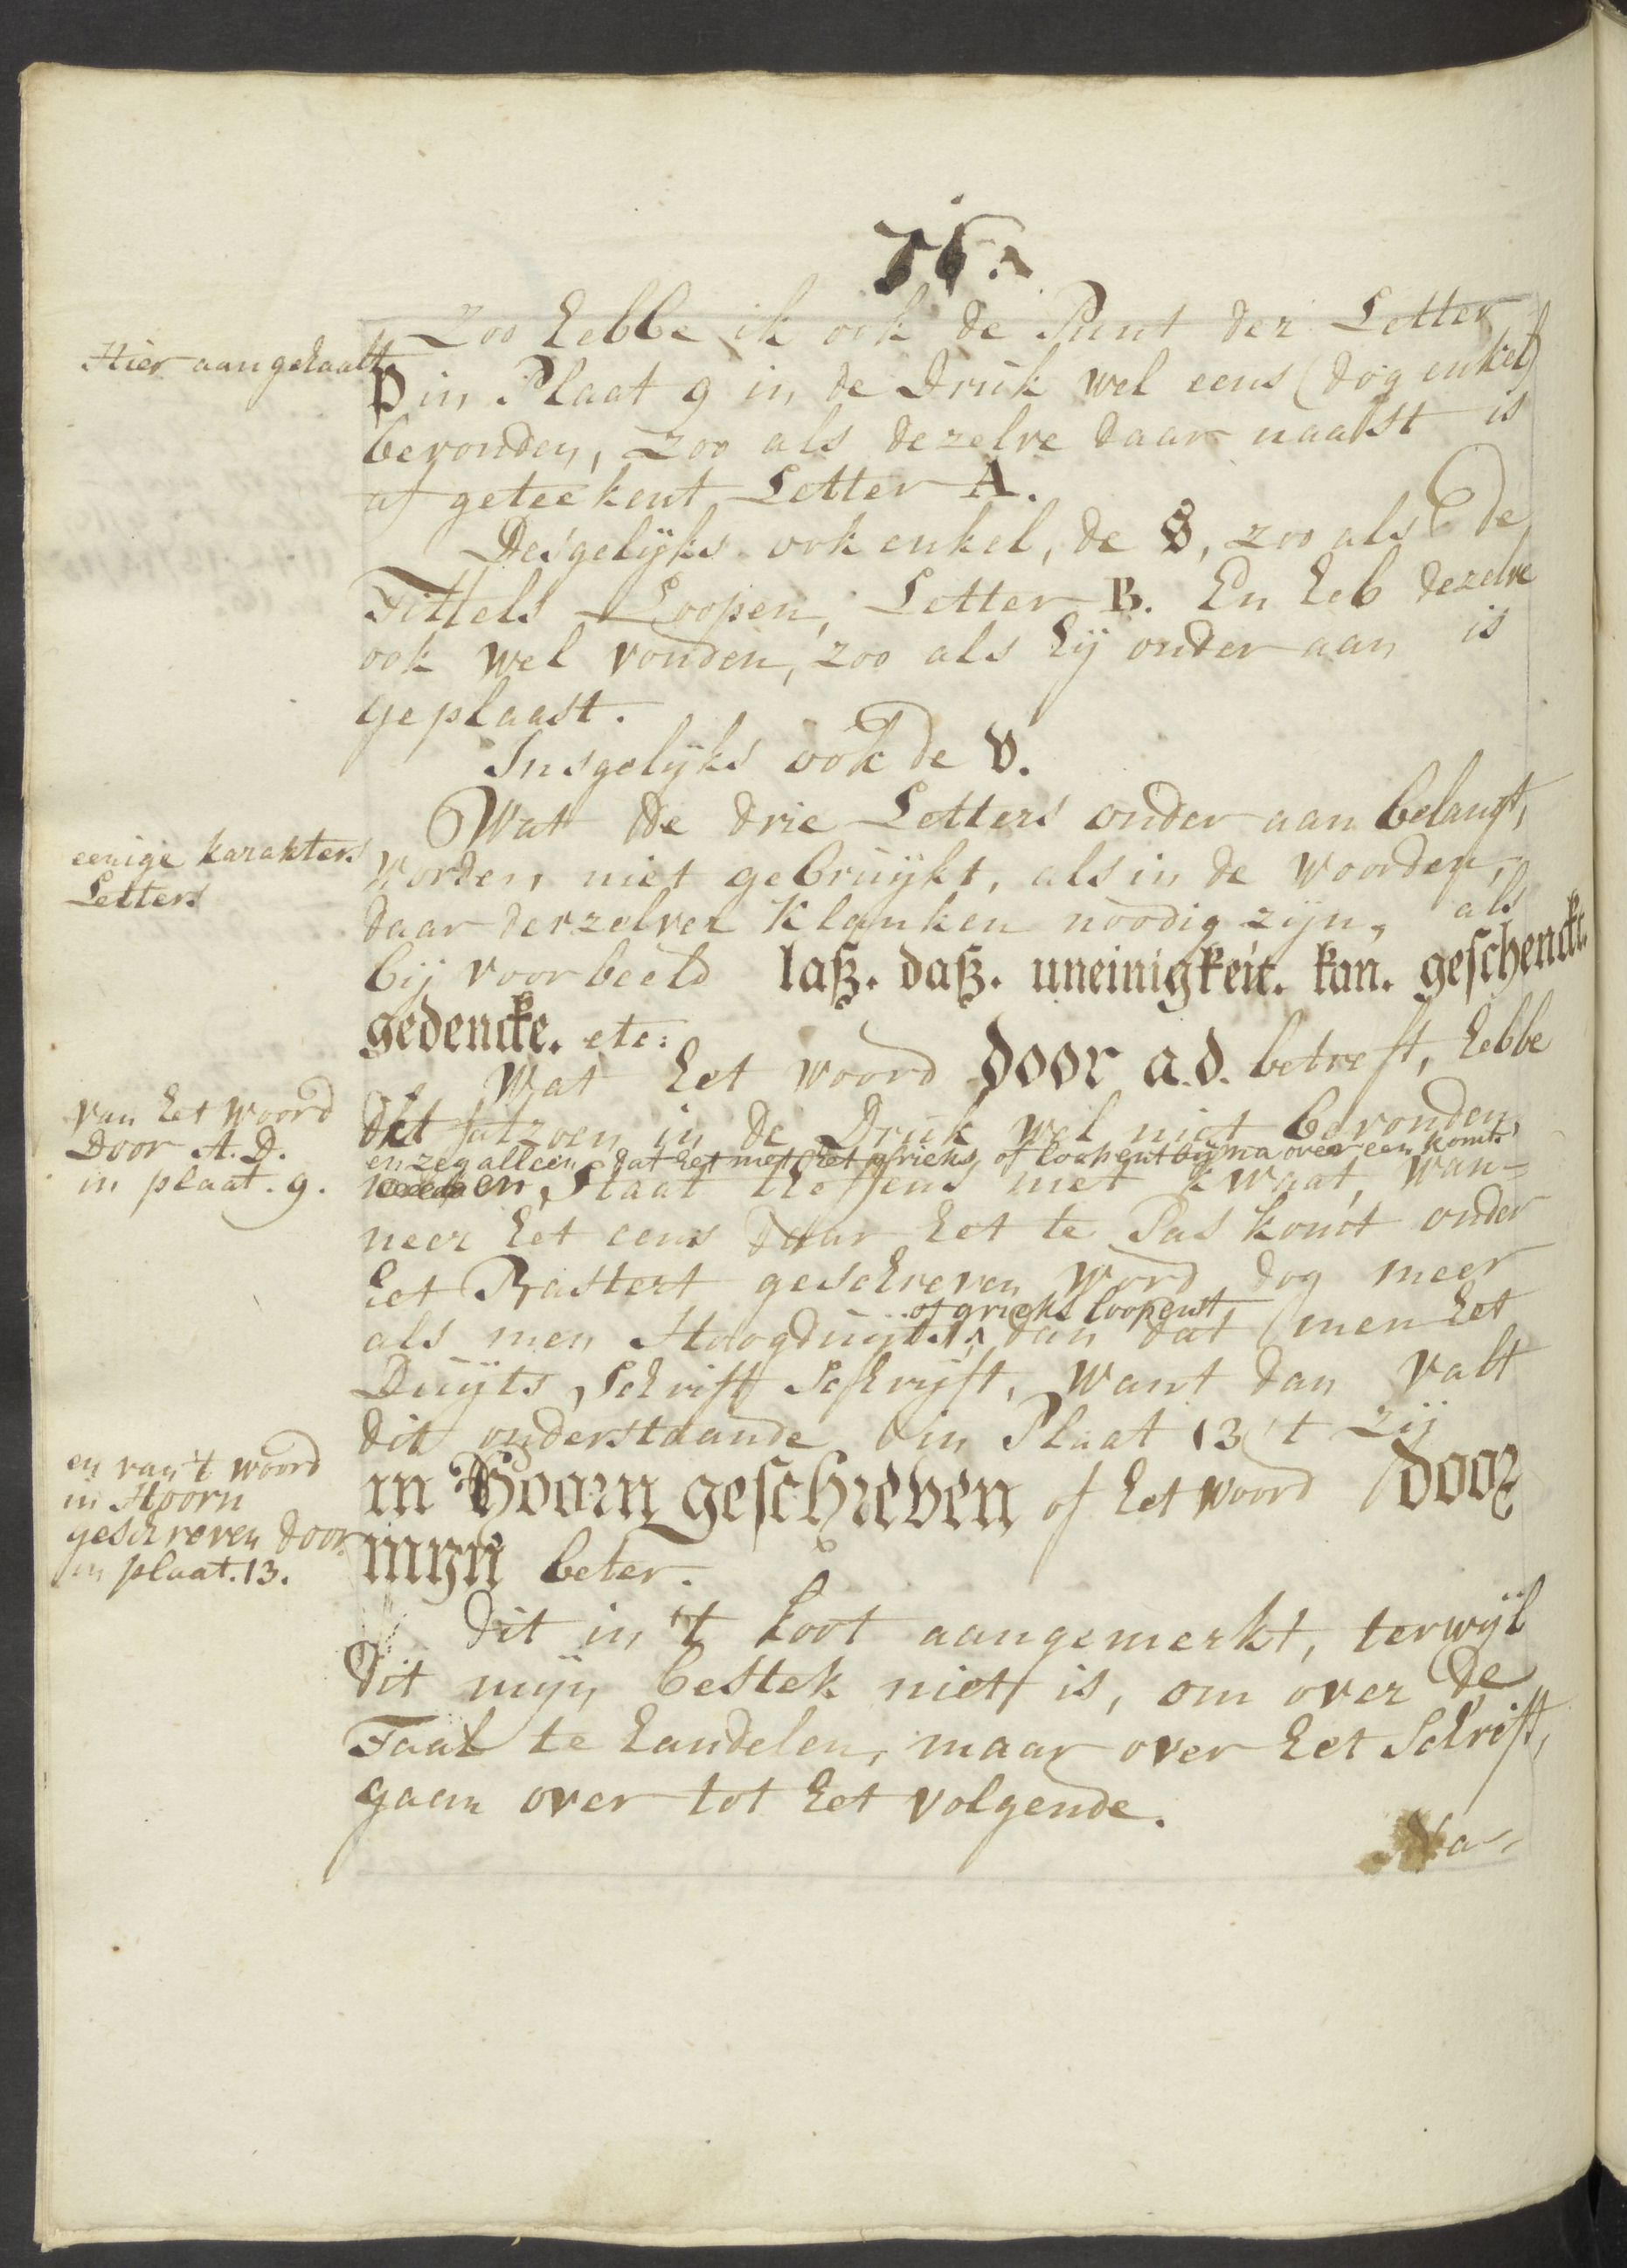 76.
Zoo hebbe ik ook de Punt der Letter
Hier aangehaalt
D in Plaat 9 in de Druk wel eens (dog enkel)
bevonden, zoo als dezelve daar naast is
af geteekent Letter A.
Desgelijks ook enkel, de S, zoo als de
Tittels Loopen, Letter B. En heb dezelve
ook wel vonden, zoo als hij onder aan is
geplaast.
Insgelijks ook de V.
Wat de drie Letters onder aan belangt,
eenige karakters
Letters
worden niet gebruijkt, als in de woorden,
daar derzelver Klanken noodig zijn, als
bij voorbeeld laß. daß. uneinigkeit. kan. geschenckt.
gedencke. etc:
Wat het woord door a.d. betreft, hebbe
van het woord
Door A. D.
in plaat. 9.
dit fatzoen in de Druk wel niet bevonden,
en zeg alleen dat het met het grieks of loopent bijna over een komt,
en Staat theffens niet kwaat, wan=
neer het eens daar het te Pas komt onder
het Bastert geschreven word, dog meer
of grieks loopent
als men Hoogduijts, dan dat men het
Duijts Schrift Schrijft, want dan valt
dit onderstaande in Plaat 13 't zij
en van 't woord
in Hoorn
geschreven door
in plaat. 13.
in Hoorn geschreven of het woord door
mijn beter.
Dit in 't kort aangemerkt, terwijl
dit mijn bestek niet is, om over de
Taal te handelen, maar over het Schrift,
gaan over tot het volgende.
Na-